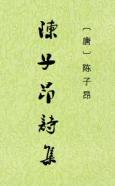 〔唐〕陈子昂
陳子昂詩集